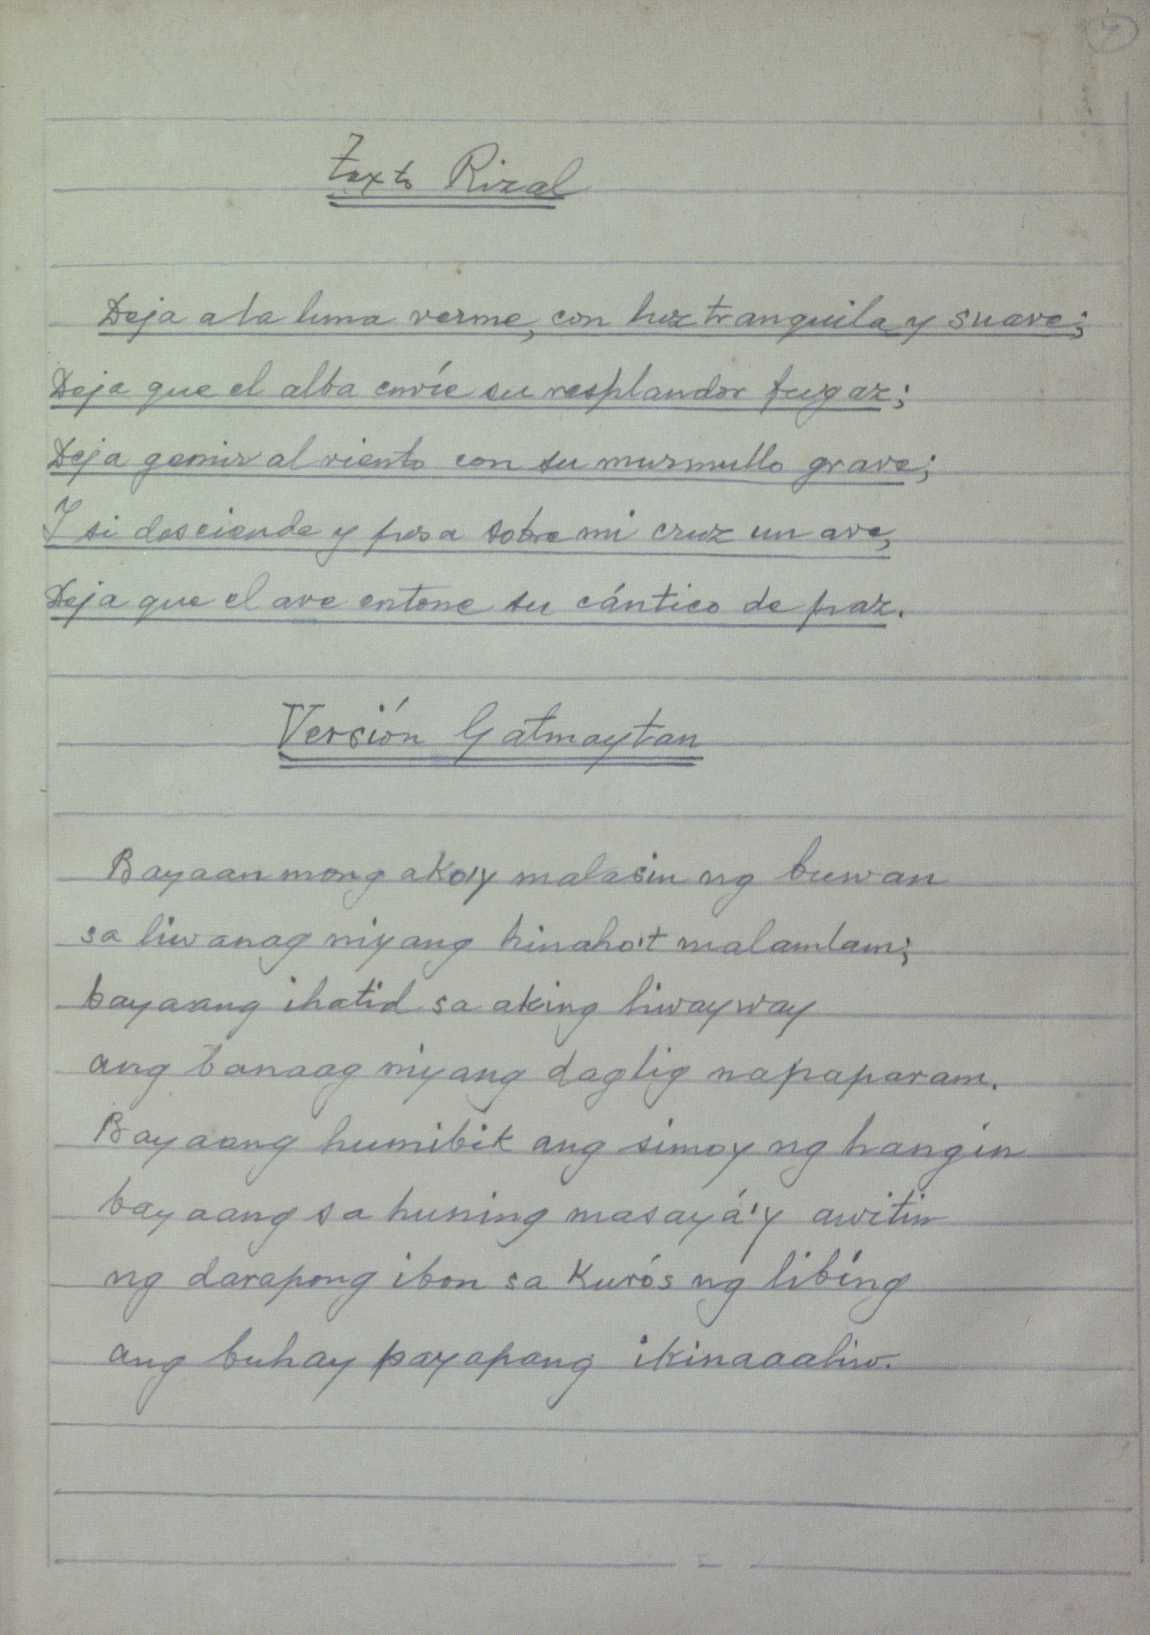 7
Texto Rizal
Deja a la luna verme, con luz tranquila y suave;
Deja que el alba envíe su resplandor fugaz;
Deja gemir al viento con su murmullo grave;
Y si desciende y posa sobre mi cruz un ave,
Deja que el ave entone su cántico de paz.
Versión Gatmaytan
Bayaan mong ako'y malasin ng buwan
sa liwanag niyang hinaho't malamlam;
bayaang ihatid sa aking liwayway
ang banaag niyang daglig napaparam.
Bayaang humibik ang simoy ng hangin
bayaang sa huning masayá'y awitin
ng darapong ibon sa Kurós ng libíng
ang buhay payapang ikinaaaliw.